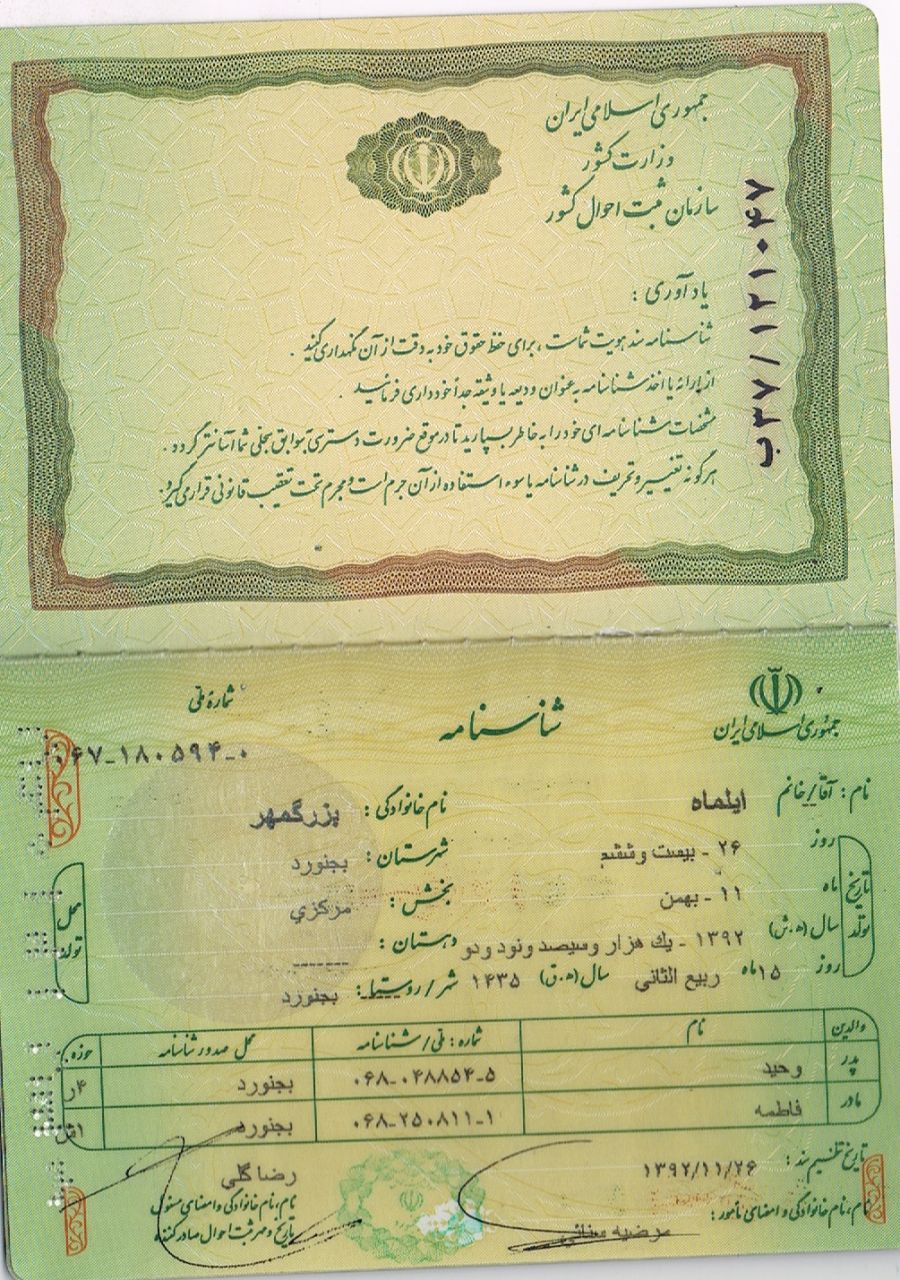 جمهوری اسلامی ایران
وزارت کشور
سازمان ثبت احوال کشور
ب۳۷/۱۲۱۰۴۷
یادآوری :
شناسنامه سند هویت شماست ، برای حفظ حقوق خود به دقت از آن نگهداری کنید .
از ارائه یا اخذ شناسنامه به عنوان ودیعه یا وثیقه جداً خودداری فرمائید .
مشخصات شناسنامه ای خود را به خاطر بسپارید تا در موقع ضرورت دسترسی به سوابق سجلی شما آسانتر گردد .
هرگونه تغییر و تحریف در شناسنامه یا سوء استفاده از آن جرم است و مجرم تحت تعقیب قانونی قرار می گیرد .
جمهوری اسلامی ایران
شناسنامه
شماره ملی
۰۶۷-۱۸۰۵۹۴-۰
نام : آقا/خانم ایلماه نام خانوادگی : بزرگمهر
تاریخ تولد
روز ۲۶ - بیست وششم شهرستان : بجنورد
ماه ۱۱ - بهمن بخش : مرکزي
سال (ه.ش) ۱۳۹۲ - یك هزار وسیصد ونود ودو دهستان : -------
روز ۱۵ ماه ربیع الثانی سال (ه.ق) ۱۴۳۵ شهر/روستا : بجنورد
محل تولد
والدین نام شماره : ملی/شناسنامه محل صدور شناسنامه حوزه
پدر وحید ۰۶۸-۰۴۸۸۵۴-۵ بجنورد ۴ر
مادر فاطمه ۰۶۸-۲۵۰۸۱۱-۱ بجنورد
تاریخ تنظیم سند : ۱۳۹۲/۱۱/۲۶ رضا گلی
نام، نام خانوادگی و امضای مأمور : نام، نام خانوادگی و امضای مسئول
تاریخ و مهر ثبت احوال صادر کننده